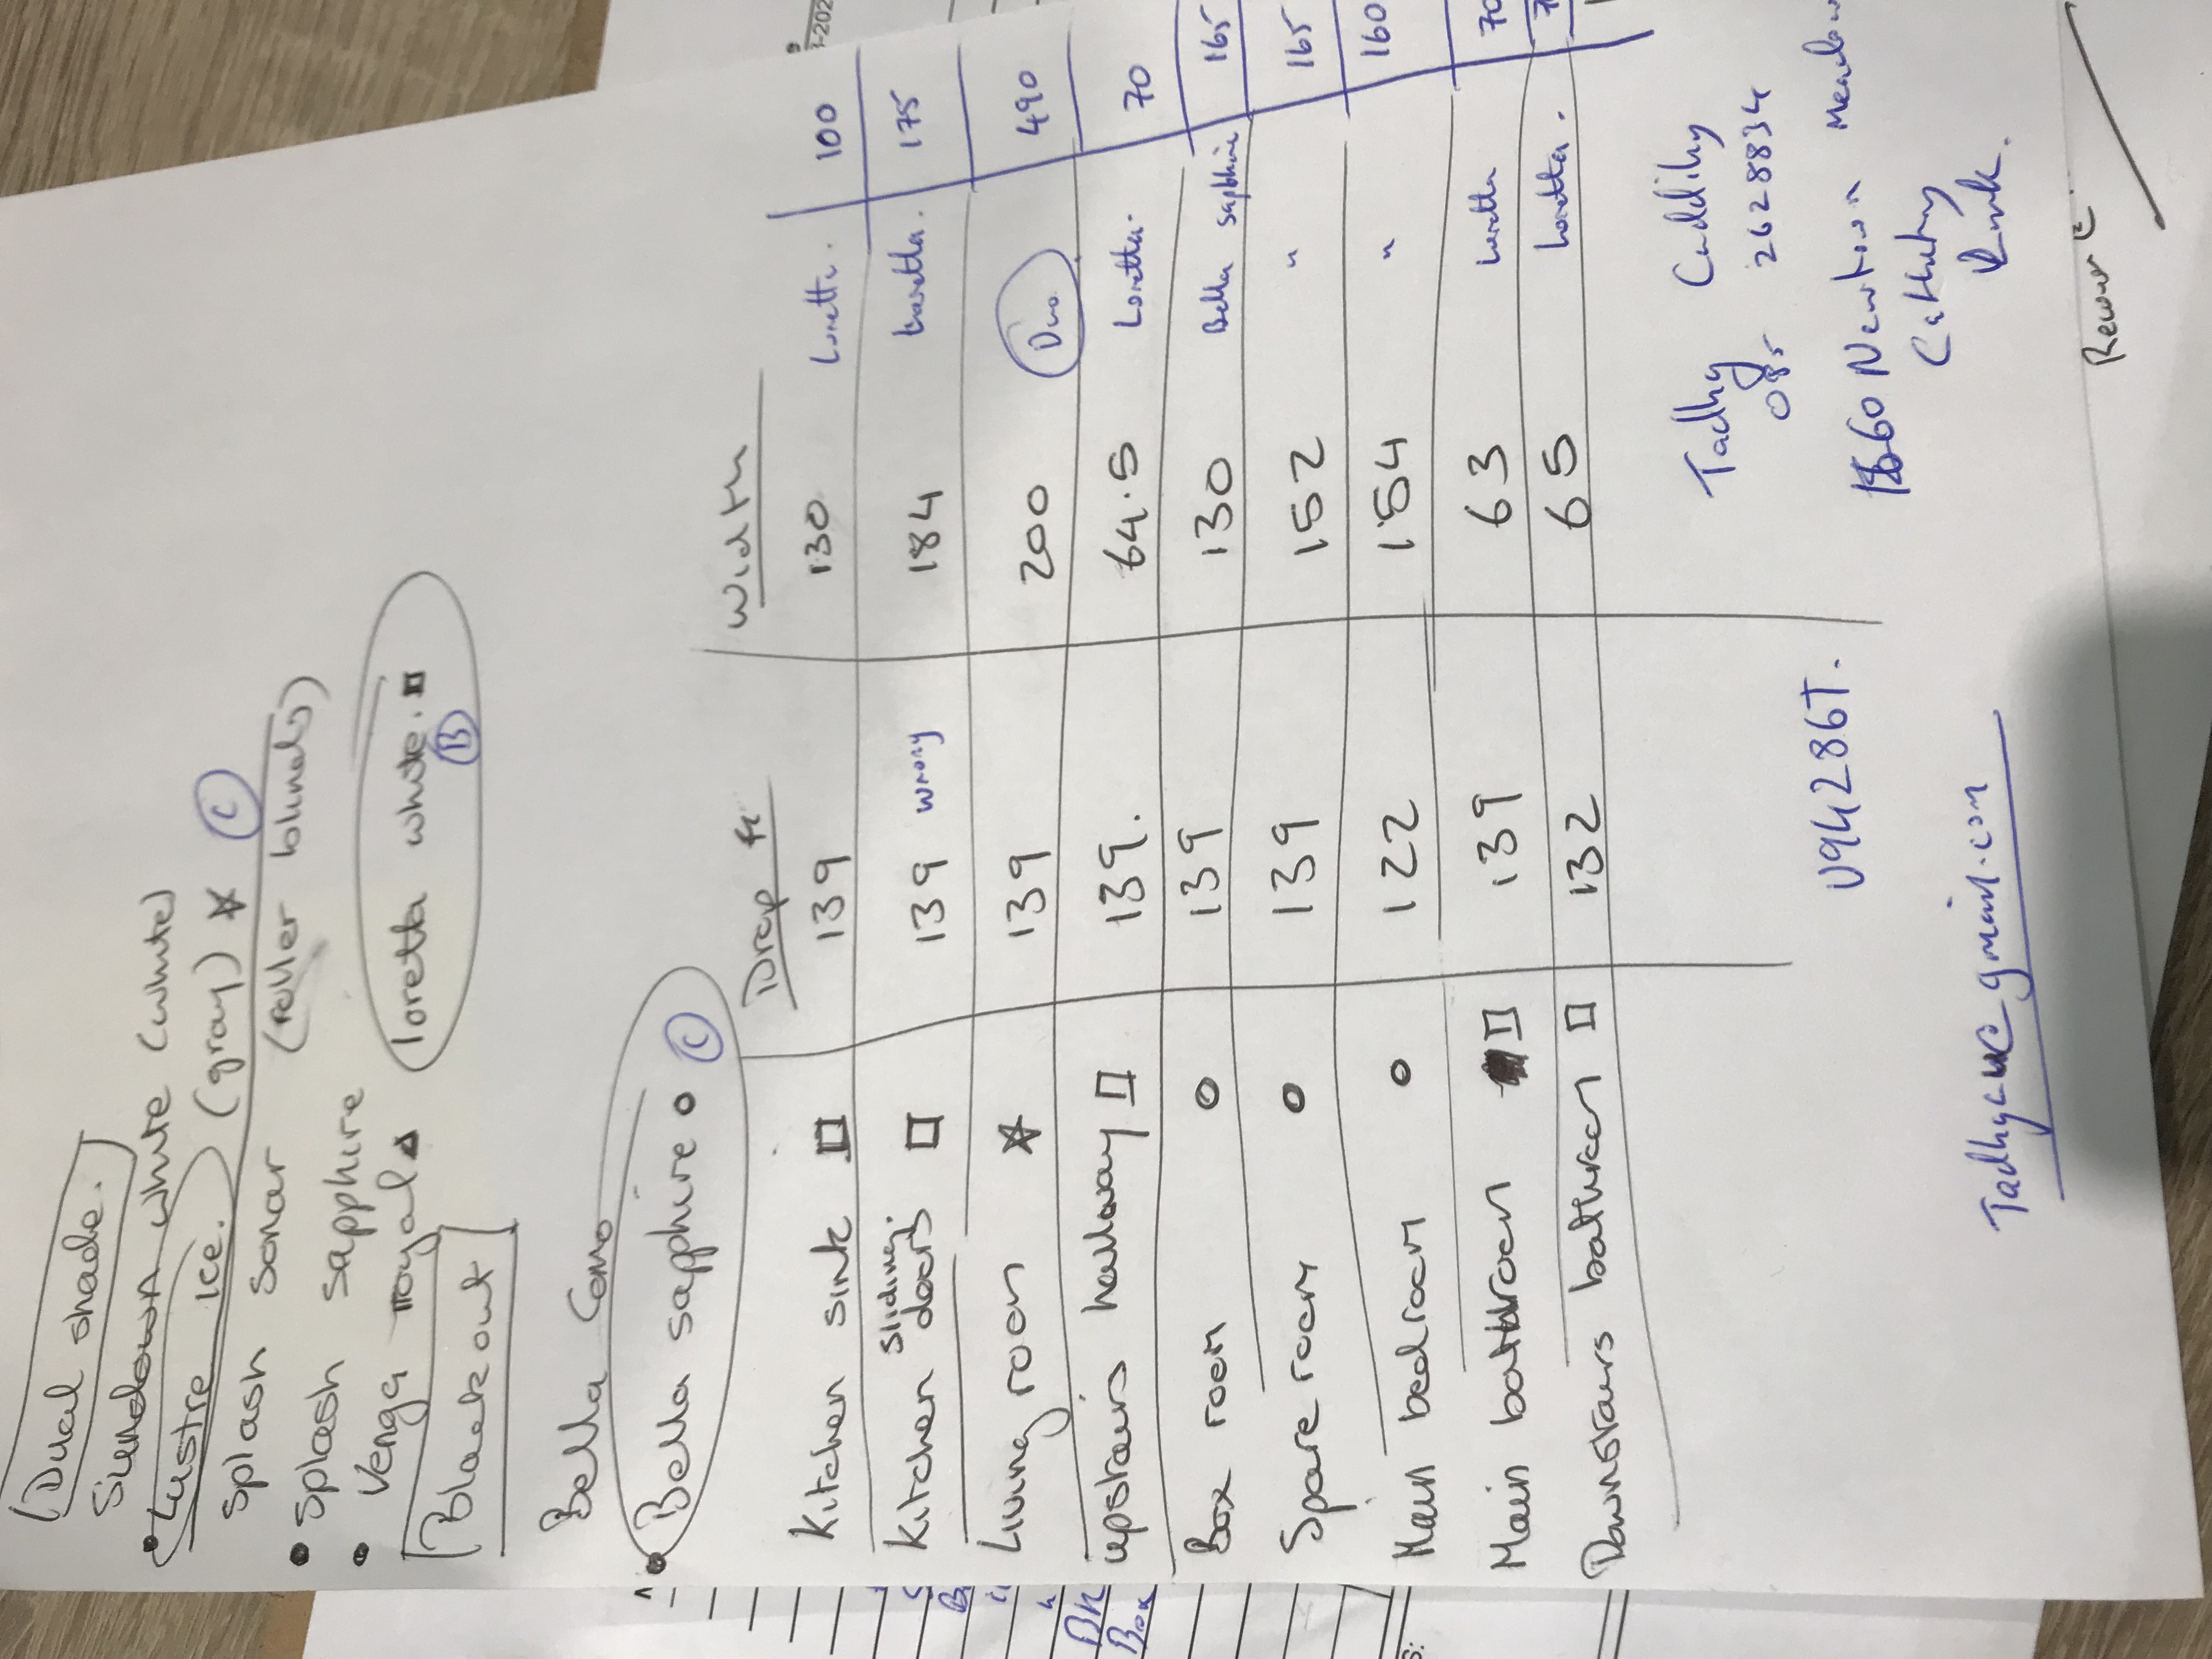 Dual shade.
Sundown white (white)
Lustre ice. (gray) ☆ C
Splash sonar (roller blinds)
Splash sapphire
Venga royal △ loretta white. □ B
Blackout
Bella Como
Bella sapphire o C
Drop Width
Kitchen sink □ 139 130 Loretta. 100
Kitchen sliding doors □ 139 wrong 184 Loretta. 175
Living room ☆ 139 200 Duo 490
upstairs hallway □ 139. 64.5 Loretta. 70
Box room o 139 130 Bella sapphire 165
Spare room o 139 152 " 165
Main bedroom o 122 154 " 160
Main bathroom □ 139 63 Loretta 70
Downstairs bathroom □ 132 65 Loretta.
Tadhg Cuddihy
085 2628834
Newtown
V94286T.
gmail.com
Box